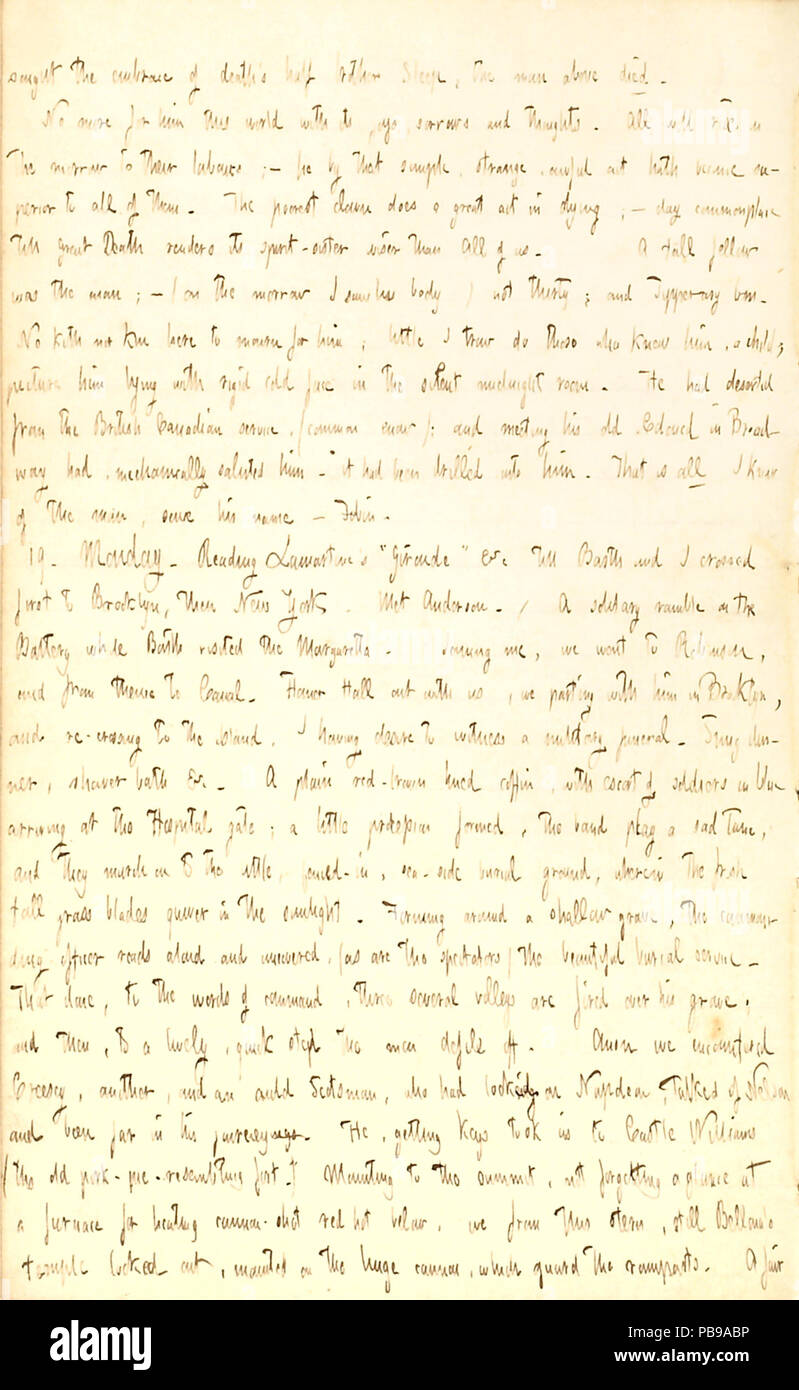 sought the embrace of death's half brother Sleep, the man above died.
No more for him this world with its joys, sorrows and thoughts. All will rise on
the morrow to their labours; — he by that simple, strange, awful act hath become su-
perior to all of them. The poorest clown does a great act in dying; — day commonplace
till great Death renders its spirit-sister wiser than all of us. A tall fellow
was the man; — (on the morrow I saw his body) not thirty; and Tipperary born.
No kith nor kin here to mourn for him; little I trow do those who knew him, a child,
picture him lying with rigid cold face in the silent midnight room. He had deserted
from the British Canadian service, (common enow): and meeting his old Colonel in Broad-
way had, mechanically saluted him — it had been drilled into him. That is all I know
of the man, save his name — Tobin.
19. Monday. Reading Lamartine's "Gironde" &c till Barth and I crossed
first to Brooklyn, then New York. Met Anderson. / A solitary ramble on the
Battery while Barth visited the Margaretta. Joining me, we went to Robinson,
and from thence to Canal. Homer Hall out with us, we parting with him in Brooklyn,
and re-crossing to the island. I having desire to witness a military funeral. Snug din-
ner, shower bath &c. A plain red-brown hued coffin, with escort of soldiers in blue
arriving at the Hospital gate; a little procession formed, the band play a sad tune,
and they march on to the little, fenced-in, sea-side burial ground, wherein the fresh
tall grass blades quiver in the sunlight. Forming around a shallow grave, the comman-
ding officer reads aloud and uncovered, (as are the spectators) the beautiful burial service.
That done, to the words of command, three several volleys are fired over his grave;
and then, to a lively, quick step the men defile off. Anon we encountered
Creesey, another, and an auld Scotsman, who had looked on Napoleon, talked of Nelson
and been far in his journeyings. He, getting keys took us to Castle Williams
(the old pork-pie-resembling fort.) Mounting to the summit, not forgetting a glance at
a furnace for heating cannon-shot red hot below, we from this stern, still Bellona's
temple looked out, mounted on the huge cannon, which guard the ramparts. A fair
alamy
PB9ABP
Image ID: PB9ABP
www.alamy.com